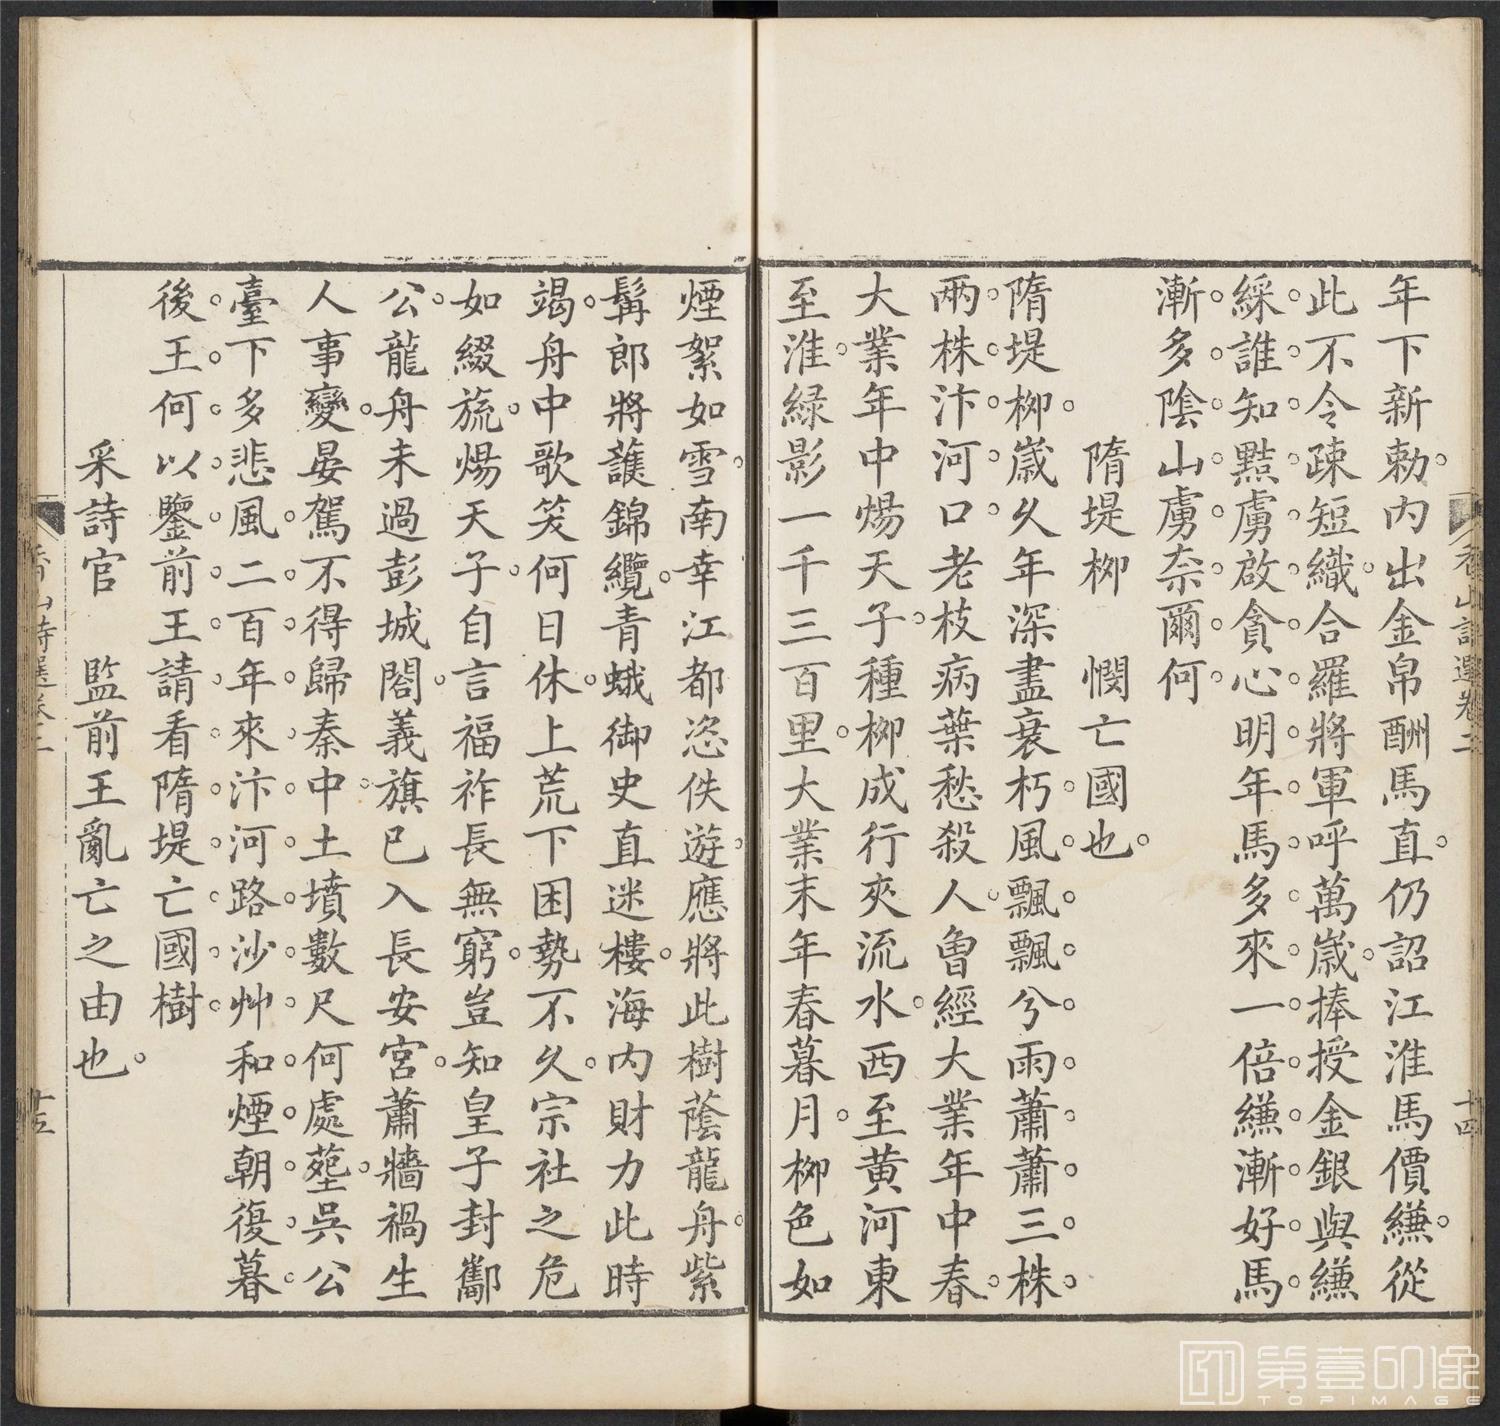 年下新勅内出金帛酬馬直仍詔江淮馬價縑從
此不令疎短織合羅將軍呼萬歲捧授金銀與縑
綵誰知黠虜啟貪心明年馬多來一倍縑漸好馬
漸多陰山虜奈爾何
隋堤柳 憫亡國也
隋堤柳歲久年深盡衰朽風飄飄兮雨蕭蕭三株
兩株汴河口老枝病葉愁殺人曾經大業年中春
大業年中煬天子種柳成行夾流水西至黃河東
至淮綠影一千三百里大業末年春暮月柳色如
煙絮如雪南幸江都恣佚遊應將此樹蔭龍舟紫
髯郎將護錦纜青蛾御史直迷樓海内財力此時
竭舟中歌笑何日休上荒下困勢不久宗社之危
如綴旒煬天子自言福祚長無窮豈知皇子封酅
公龍舟未過彭城閣義旗已入長安宮蕭牆禍生
人事變晏駕不得歸秦中土墳數尺何處葬吳公
臺下多悲風二百年來汴河路沙艸和煙朝復暮
後王何以鑒前王請看隋堤亡國樹
采詩官 監前王亂亡之由也
香山詩選卷二
十四
香山詩選卷二
十五
第壹印像
TOPIMAGE